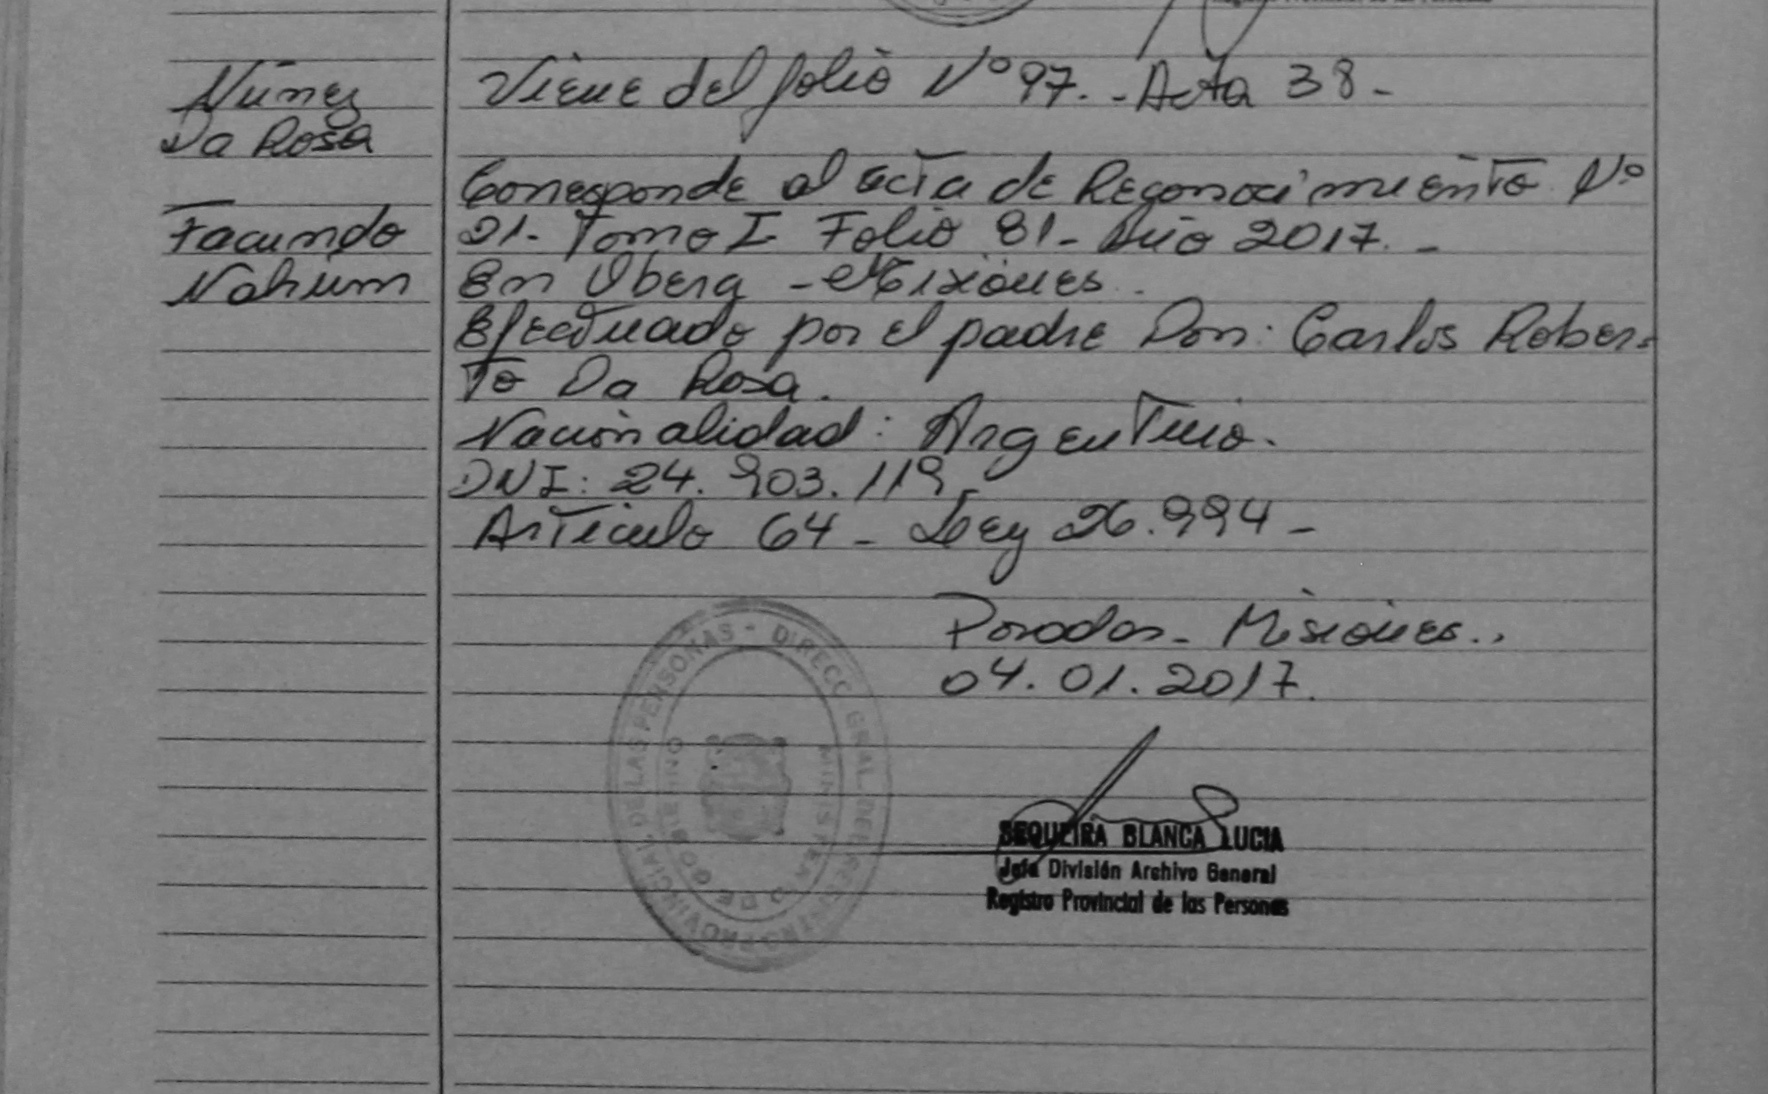 Núñez
Da Rosa
Facundo
Nahúm
Viene del folio Nº 97. - Acta 38 -
Corresponde al acta de Reconocimiento Nº
21 - Tomo I Folio 81 - Año 2017. -
En Oberá - Misiones.
Efectuado por el padre Don: Carlos Rober-
to Da Rosa.
Nacionalidad: Argentino.
DNI: 24.903.119
Artículo 64 - Ley 26.994 -
Posadas - Misiones..
04.01.2017.
DIRECC GRAL DEL REGISTRO PROVINCIAL DE LAS PERSONAS -
MINISTERIO DE GOBIERNO
SEQUEIRA BLANCA LUCIA
Jefa División Archivo General
Registro Provincial de las Personas